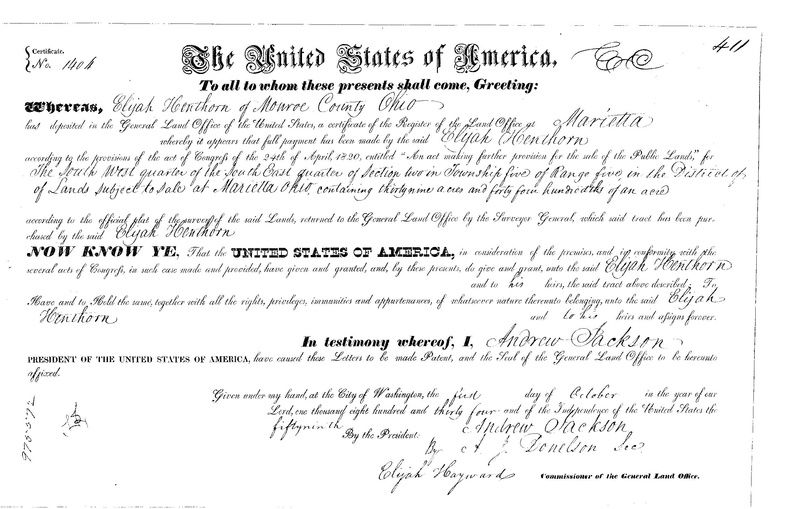 411
Certificate.
No. 1404
The United States of America,
To all to whom these presents shall come, Greeting:
WHEREAS, Elijah Henthorn of Monroe County Ohio
has deposited in the General Land Office of the United States, a certificate of the Register of the Land Office at Marietta
whereby it appears that full payment has been made by the said Elijah Henthorn
according to the provisions of the act of Congress of the 24th of April, 1820, entitled "An act making further provision for the sale of the Public Lands," for
The South West quarter of the South East quarter of Section two in Township five of Range five, in the District of
of Lands subject to sale at Marietta Ohio, containing thirty nine acres and forty four hundredths of an acre
according to the official plat of the survey of the said Lands, returned to the General Land Office by the Surveyor General, which said tract has been pur-
chased by the said Elijah Henthorn
NOW KNOW YE, That the UNITED STATES OF AMERICA, in consideration of the premises, and in conformity with the
several acts of Congress, in such case made and provided, have given and granted, and, by these presents, do give and grant, unto the said Elijah Henthorn
and to his heirs, the said tract above described: To
Have and to Hold the same, together with all the rights, privileges, immunities and appurtenances, of whatsoever nature thereunto belonging, unto the said Elijah
Henthorn and to his heirs and assigns forever.
In testimony whereof, I, Andrew Jackson
PRESIDENT OF THE UNITED STATES OF AMERICA, have caused these Letters to be made Patent, and the Seal of the General Land Office to be hereunto
affixed.
Given under my hand, at the City of Washington, the first day of October in the year of our
Lord, one thousand eight hundred and thirty four and of the Independence of the United States the
fifty ninth
By the President: Andrew Jackson
By A. J. Donelson Sec
Elijah Hayward Commissioner of the General Land Office.